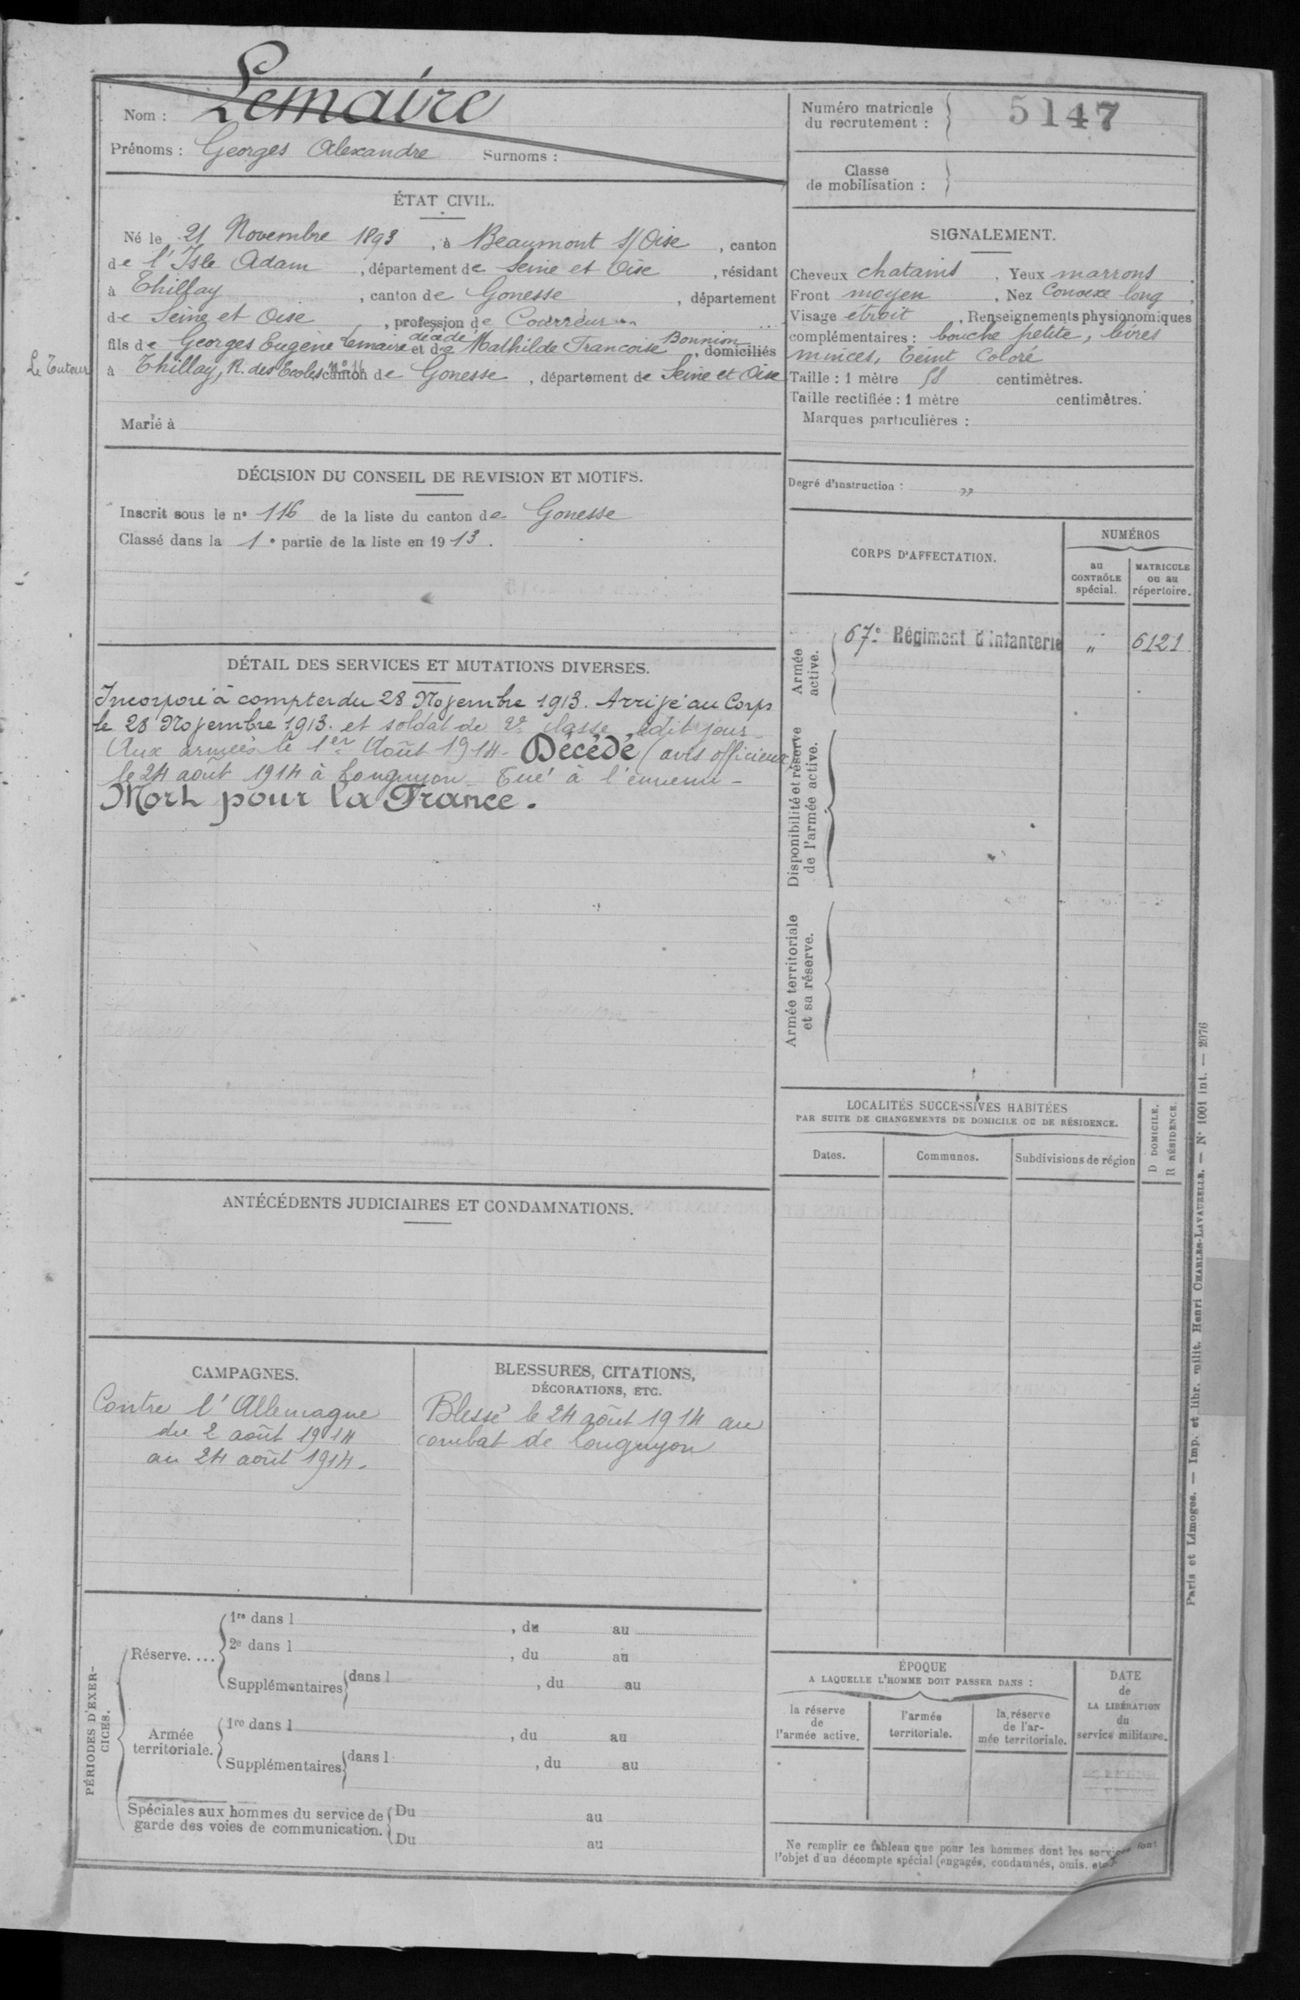 Nom : Lemaire
Prénoms : Georges Alexandre Surnoms :
Numéro matricule
du recrutement : 5147
Classe
de mobilisation :
ÉTAT CIVIL.
Né le 21 Novembre 1893, à Beaumont s/Oise, canton
de l'Isle Adam, département de Seine et Oise, résidant
à Thillay, canton de Gonesse, département
de Seine et Oise, profession de
fils de Georges Eugène Lemaire décédé et de Mathilde Francoise Bonnion, domiciliés
Le Tuteur
à Thillay, R. des Ecoles canton de Gonesse, département de Seine et Oise
Marié à
SIGNALEMENT.
Cheveux chatains. Yeux marrons
Front moyen, Nez Convexe long,
Visage étroit, Renseignements physionomiques
complémentaires : bouche petite, lèvres
minces, Teint Coloré
Taille : 1 mètre 58 centimètres.
Taille rectifiée : 1 mètre centimètres.
Marques particulières :
Degré d'instruction : "
DÉCISION DU CONSEIL DE REVISION ET MOTIFS.
Inscrit sous le n° 116 de la liste du canton de Gonesse
Classé dans la 1e partie de la liste en 1913.
CORPS D'AFFECTATION.
NUMÉROS
au
CONTRÔLE
spécial.
MATRICULE
ou au
répertoire.
Armée
active.
67e Régiment d'Infanterie " 6121
Disponibilité et réserve
de l'armée active.
Armée territoriale
et sa réserve.
DÉTAIL DES SERVICES ET MUTATIONS DIVERSES.
Incorporé à compter du 28 Novembre 1913. Arrivé au Corps
le 28 Novembre 1913. et soldat de 2e classe, edit jour
Aux armées le 1er Août 1914. Décédé (avis officieux)
le 24 août 1914 à Longuyon Tué à l'ennemi -
Mort pour la France.
LOCALITÉS SUCCESSIVES HABITÉES
PAR SUITE DE CHANGEMENTS DE DOMICILE OU DE RÉSIDENCE.
D DOMICILE.
R RÉSIDENCE.
Dates.
Communes.
Subdivisions de région
ANTÉCÉDENTS JUDICIAIRES ET CONDAMNATIONS.
CAMPAGNES.
Contre l'Allemagne
du 2 août 1914
au 24 août 1914.
BLESSURES, CITATIONS,
DÉCORATIONS, ETC.
Blessé le 24 août 1914 au
combat de Longuyon
PÉRIODES D'EXER-
CICES.
Réserve....
1re dans l , du au
2e dans l , du au
Supplémentaires dans l , du au
Armée
territoriale.
1re dans l , du au
Supplémentaires dans l , du au
Spéciales aux hommes du service de
garde des voies de communication.
Du au
Du au
ÉPOQUE
A LAQUELLE L'HOMME DOIT PASSER DANS :
la réserve
de
l'armée active.
l'armée
territoriale.
la réserve
de l'ar-
mée territoriale.
DATE
de
LA LIBÉRATION
du
service militaire.
Ne remplir ce tableau que pour les hommes dont les services font
l'objet d'un décompte spécial (engagés, condamnés, omis, etc
Paris et Limoges. — Imp. et libr. milit. Henri CHARLES-LAVAUZELLE. — N° 1001 int. — 2076